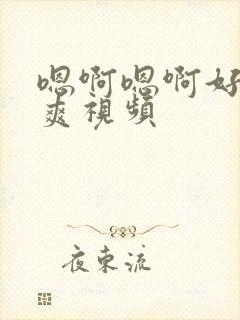 嗯啊嗯啊好
爽視頻
夜東流